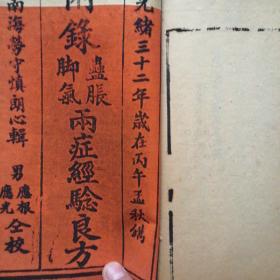 光緒三十二年歲在丙午孟秋鐫
附錄蠱脹脚氣兩症經驗良方
南海勞守慎朗心輯
男應根應光仝校